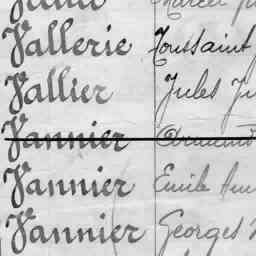 Marcel
Vallerie Toussaint
Vallier Jules
Vannier
Vannier Emile
Vannier Georges